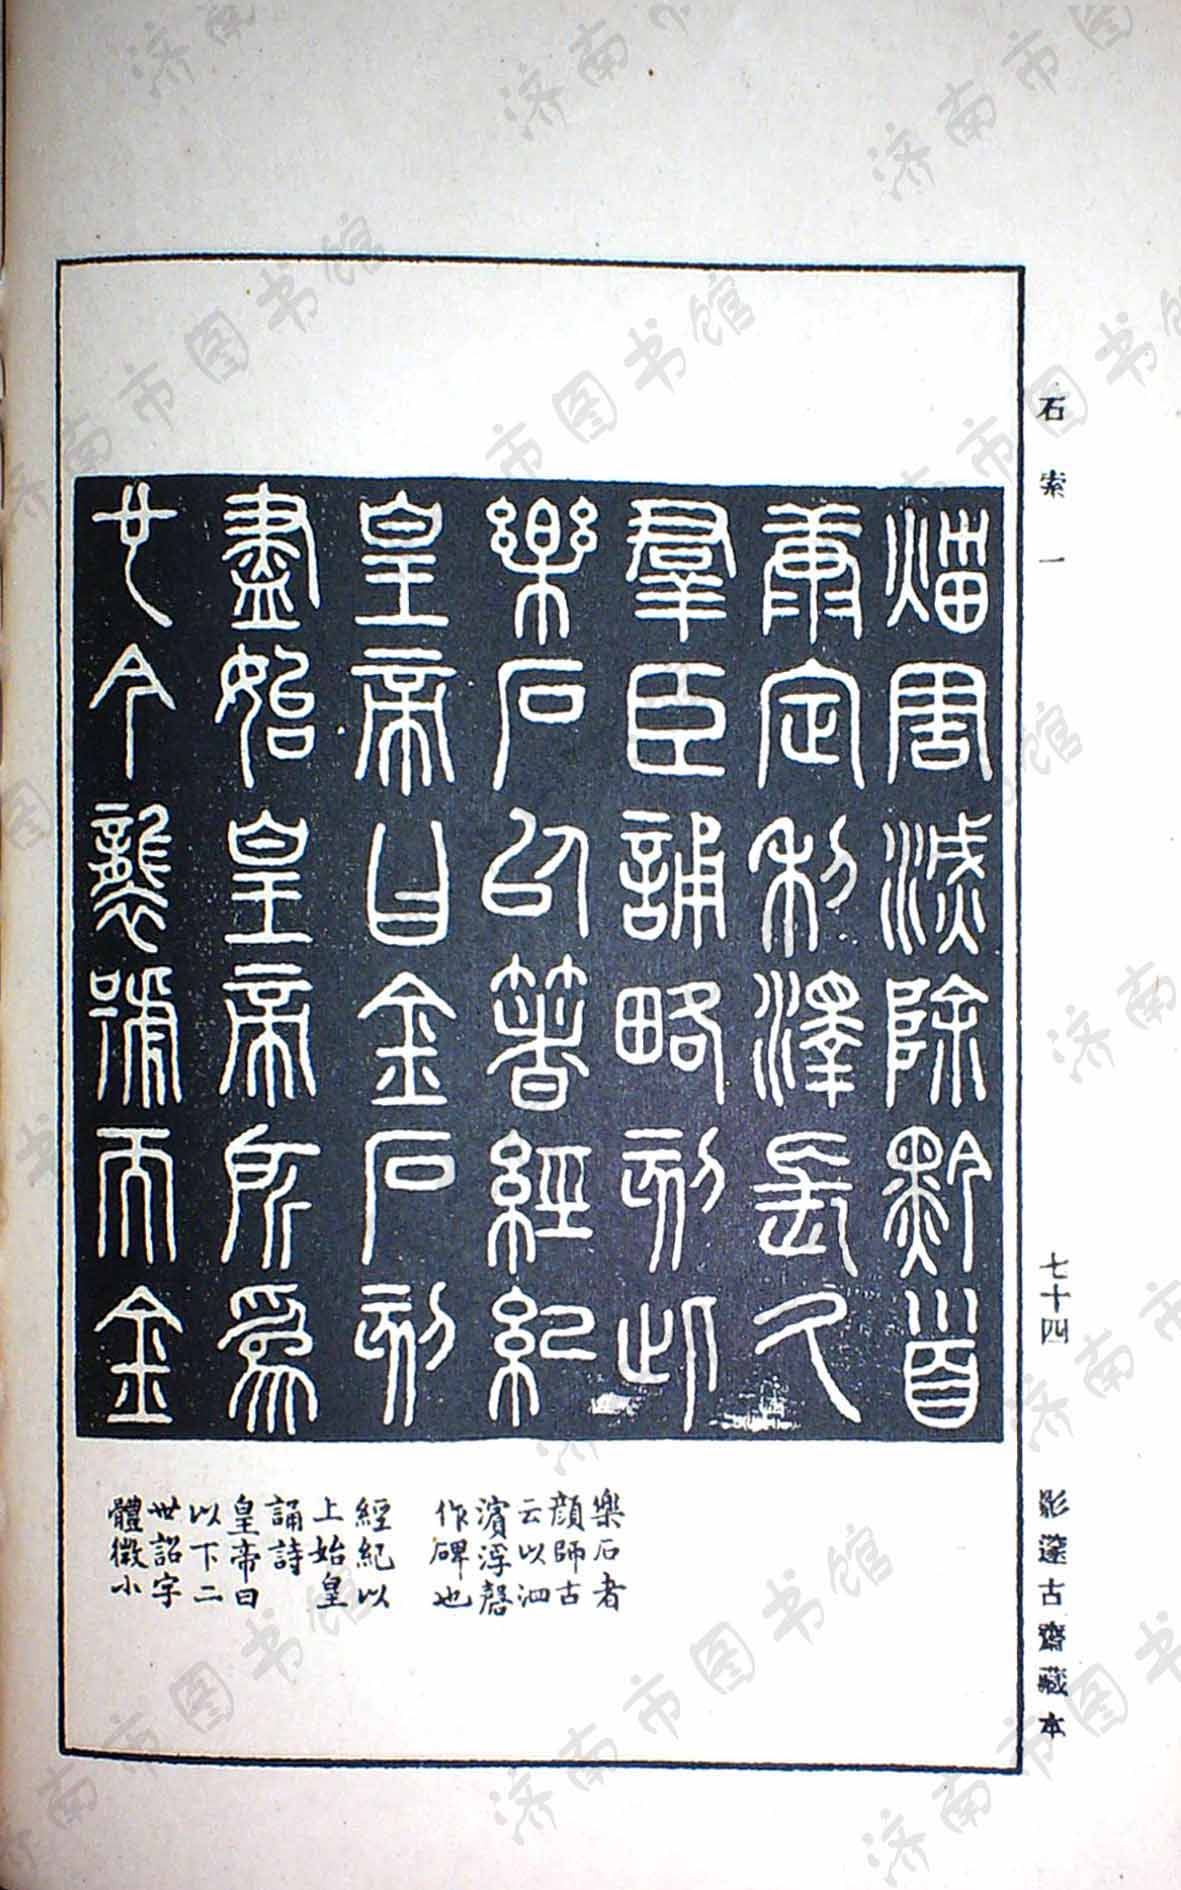 石索一
七十四
影邃古齋藏本
烖害滅除黔首
康定利澤長久
羣臣誦略刻此
樂石以著經紀
皇帝曰金石刻
盡始皇帝所爲
也今襲號而金
樂石者
顔師古
云以泗
濱浮磬
作碑也
經紀以
上始皇
誦詩
皇帝曰
以下二
世詔字
體微小
济南市图书馆